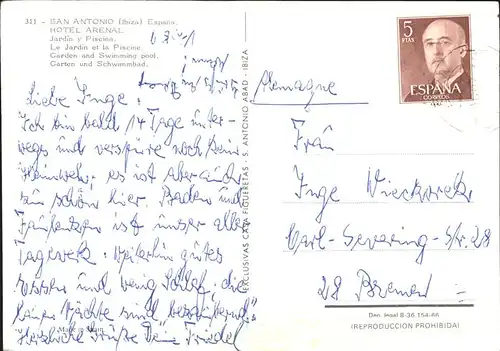 311 - SAN ANTONIO (Ibiza) España.
HOTEL ARENAL
Jardín y Piscina.
Le Jardin et la Piscine
Garden and Swimming pool.
Garten und Schwimmbad.
Liebe Inge!
Ich bin bald 14 Tage unter-
wegs und verspüre noch kein
Heimweh; es ist aber auch
zu schön hier. Baden und
Faulenzen ist unser aller
Tagewerk. Weiterhin gutes
Essen und wenig Schlaf, die
Nächte sind bezaubernd.
Herzliche Grüße Deine Friedel
Made in Spain
EXCLUSIVAS CASA FIGUERETAS - S. ANTONIO ABAD - IBIZA
5
PTAS
ESPAÑA
CORREOS
Alemagne
Frau
Inge
Carl-Severing-Str. 28
28 Bremen
Dep. legal B-36.154-66
(REPRODUCCION PROHIBIDA)